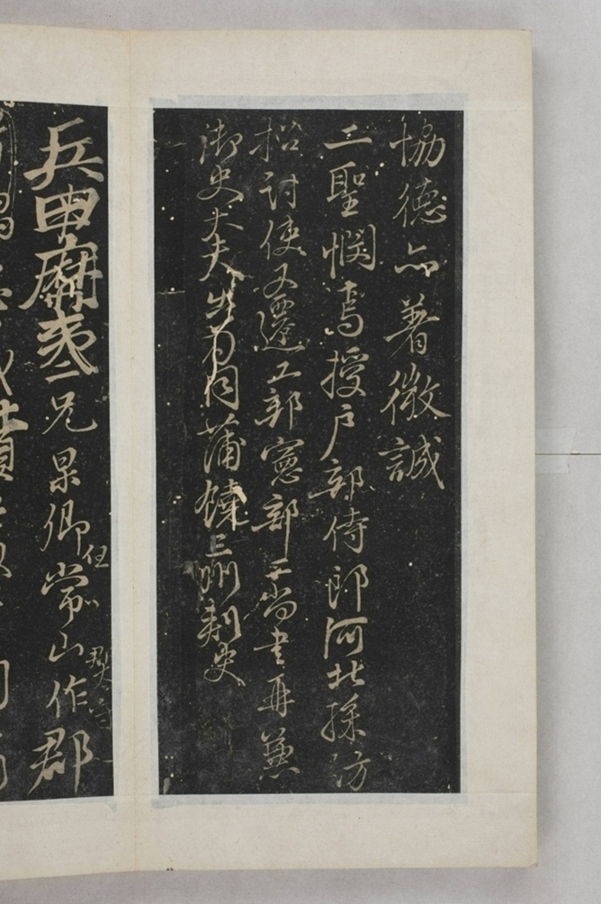 協德亦著微誠
二聖憫焉授戶部侍郎河北採訪
招討使又遷工部憲部二尚書再兼
御史大夫出為同蒲饒三州刺史
兵甲靡夷二兄杲卿任常山作郡